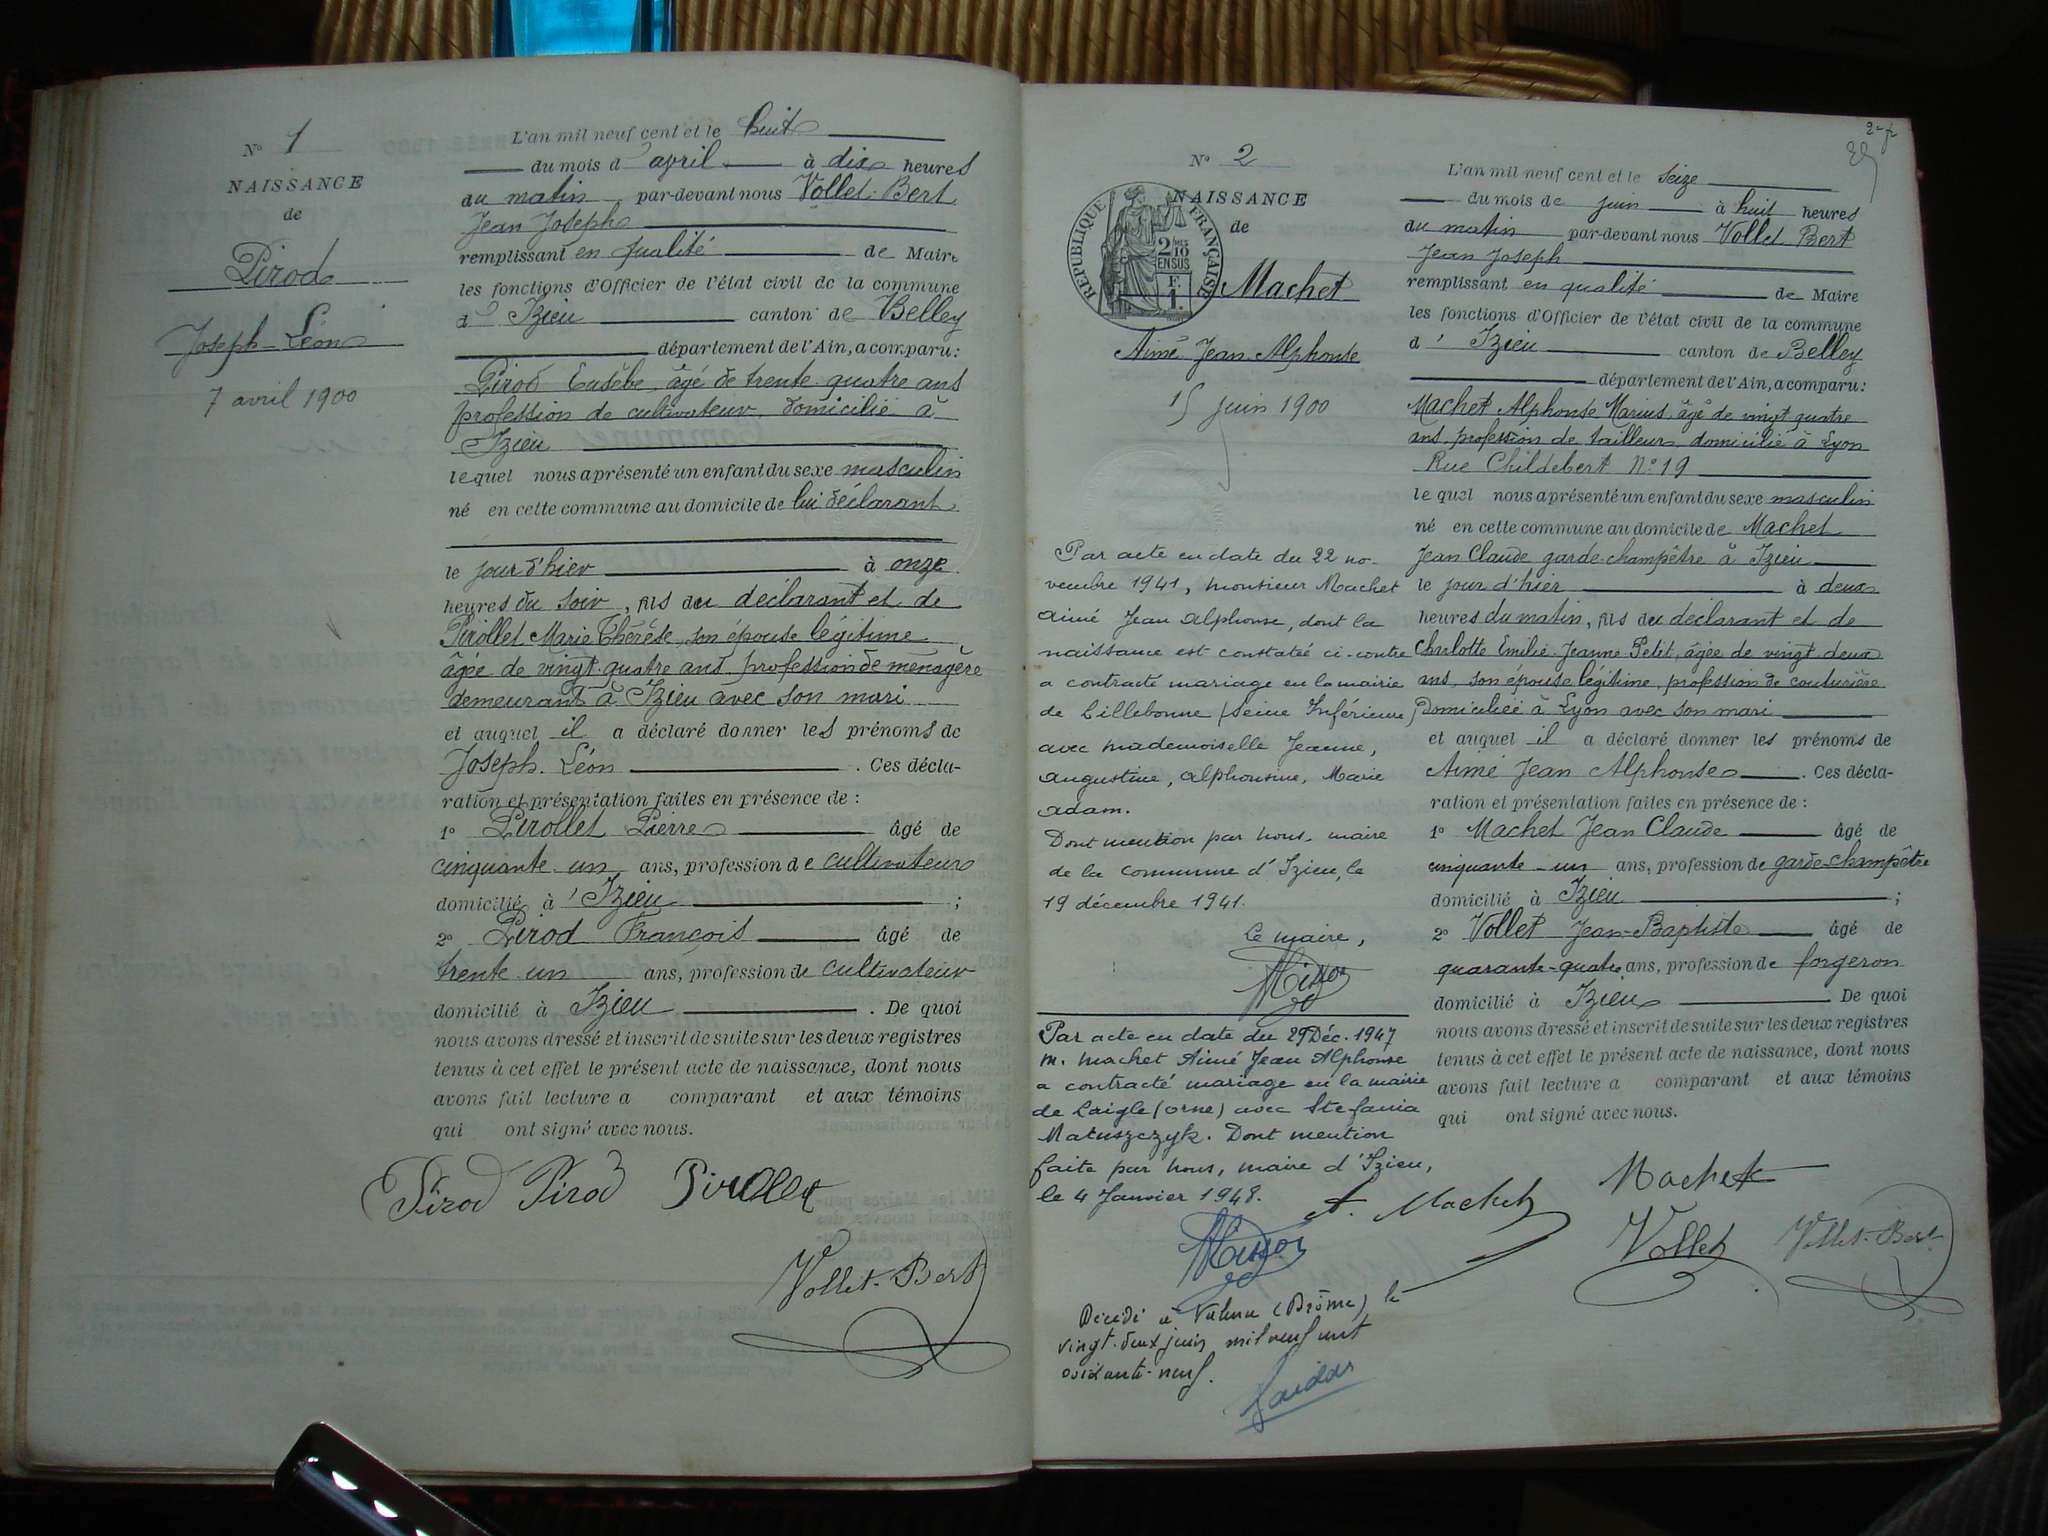 N° 1
NAISSANCE
de
Pirod
Joseph-Léon
7 avril 1900
L'an mil neuf cent et le huit
du mois d'avril à dix heures
du matin par-devant nous Vollet-Bert
Jean Joseph
remplissant en qualité de Maire
les fonctions d'Officier de l'état civil de la commune
d'Izieu canton de Belley
département de l'Ain, a comparu:
Pirod Eusèbe, âgé de trente quatre ans
profession de cultivateur, domicilié à
Izieu
lequel nous a présenté un enfant du sexe masculin
né en cette commune au domicile de lui déclarant
le jour d'hier à onze
heures du soir, fils du déclarant et de
Pirollet Marie Thérèse, son épouse légitime
âgée de vingt-quatre ans, profession de ménagère
demeurant à Izieu avec son mari
et auquel il a déclaré donner les prénoms de
Joseph-Léon. Ces décla-
ration et présentation faites en présence de :
1° Pirollet Pierre âgé de
cinquante-un ans, profession de cultivateur
domicilié à Izieu ;
2° Pirod François âgé de
trente-un ans, profession de cultivateur
domicilié à Izieu. De quoi
nous avons dressé et inscrit de suite sur les deux registres
tenus à cet effet le présent acte de naissance, dont nous
avons fait lecture a comparant et aux témoins
qui ont signé avec nous.
Pirod Pirod Pirollet
Vollet-Bert
N° 2
NAISSANCE
de
RÉPUBLIQUE FRANÇAISE
2/10
EN SUS
F.
1.
Machet
Aimé Jean Alphonse
15 juin 1900
Par acte en date du 22 no-
vembre 1941, monsieur Machet
aimé Jean alphonse, dont la
naissance est constatée ci-contre
a contracté mariage en la mairie
de Lillebonne (Seine Inférieure)
avec mademoiselle Jeanne,
augustine, alphonsine, Marie
adam.
Dont mention par nous, maire
de la commune d'Izieu, le
19 décembre 1941.
Le maire,
Par acte en date du 29 Déc. 1947
M. Machet Aimé Jean Alphonse
a contracté mariage en la mairie
de Laigle (Orne) avec Stefania
Matuszczyk. Dont mention
faite par nous, maire d'Izieu,
le 4 Janvier 1948.
Décédé à Valence (Drôme) le
vingt-deux juin mil neuf cent
soixante-neuf.
L'an mil neuf cent et le seize
du mois de juin à huit heures
du matin par-devant nous Vollet-Bert
Jean Joseph
remplissant en qualité de Maire
les fonctions d'Officier de l'état civil de la commune
d'Izieu canton de Belley
département de l'Ain, a comparu:
Machet Alphonse Marius, âgé de vingt quatre
ans, profession de tailleur, domicilié à Lyon
Rue Childebert N° 19
lequel nous a présenté un enfant du sexe masculin
né en cette commune au domicile de Machet
Jean Claude garde-champêtre à Izieu
le jour d'hier à deux
heures du matin, fils du déclarant et de
Chrlotte Emilie Jeanne Petit, âgée de vingt-deux
ans, son épouse légitime, profession de couturière
domiciliée à Lyon avec son mari
et auquel il a déclaré donner les prénoms de
Aimé Jean Alphonse. Ces décla-
ration et présentation faites en présence de :
1° Machet Jean Claude âgé de
cinquante-un ans, profession de garde-champêtre
domicilié à Izieu ;
2° Vollet Jean-Baptiste âgé de
quarante-quatre ans, profession de forgeron
domicilié à Izieu. De quoi
nous avons dressé et inscrit de suite sur les deux registres
tenus à cet effet le présent acte de naissance, dont nous
avons fait lecture a comparant et aux témoins
qui ont signé avec nous.
A. Machet Machet
Vollet Vollet-Bert